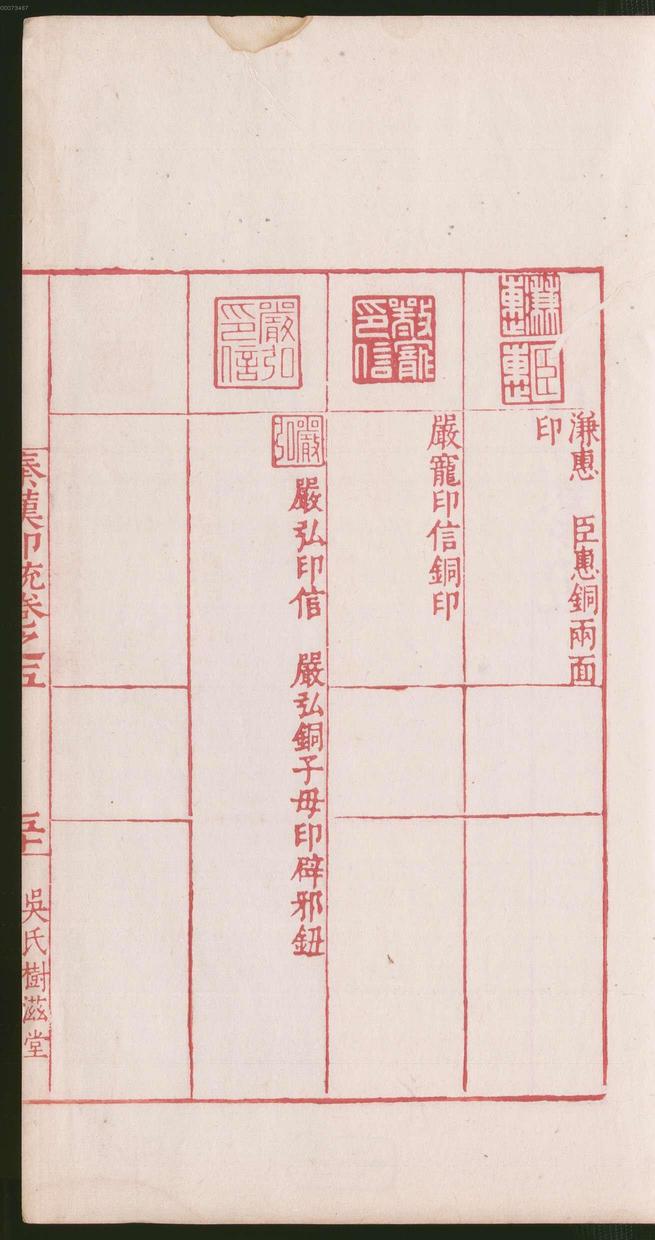 00073467
溓惠　臣惠銅兩面
印
嚴寵印信銅印
嚴弘印信　嚴弘銅子母印辟邪鈕
嚴弘
印信
嚴弘
秦漢印統卷之五
五十
吳氏樹滋堂